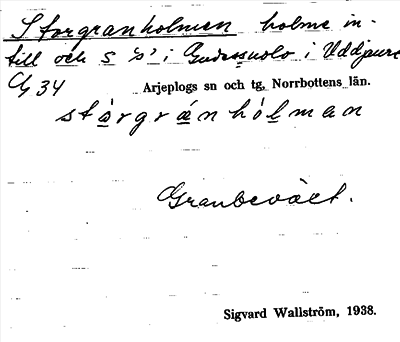 Storgranholmen holme in-
till och S 'o' i i Uddjaure
C/g 34
Arjeplogs sn och tg, Norrbottens län.
stȧrgrȧnhȯlman
Granbeväxt.
Sigvard Wallström, 1938.